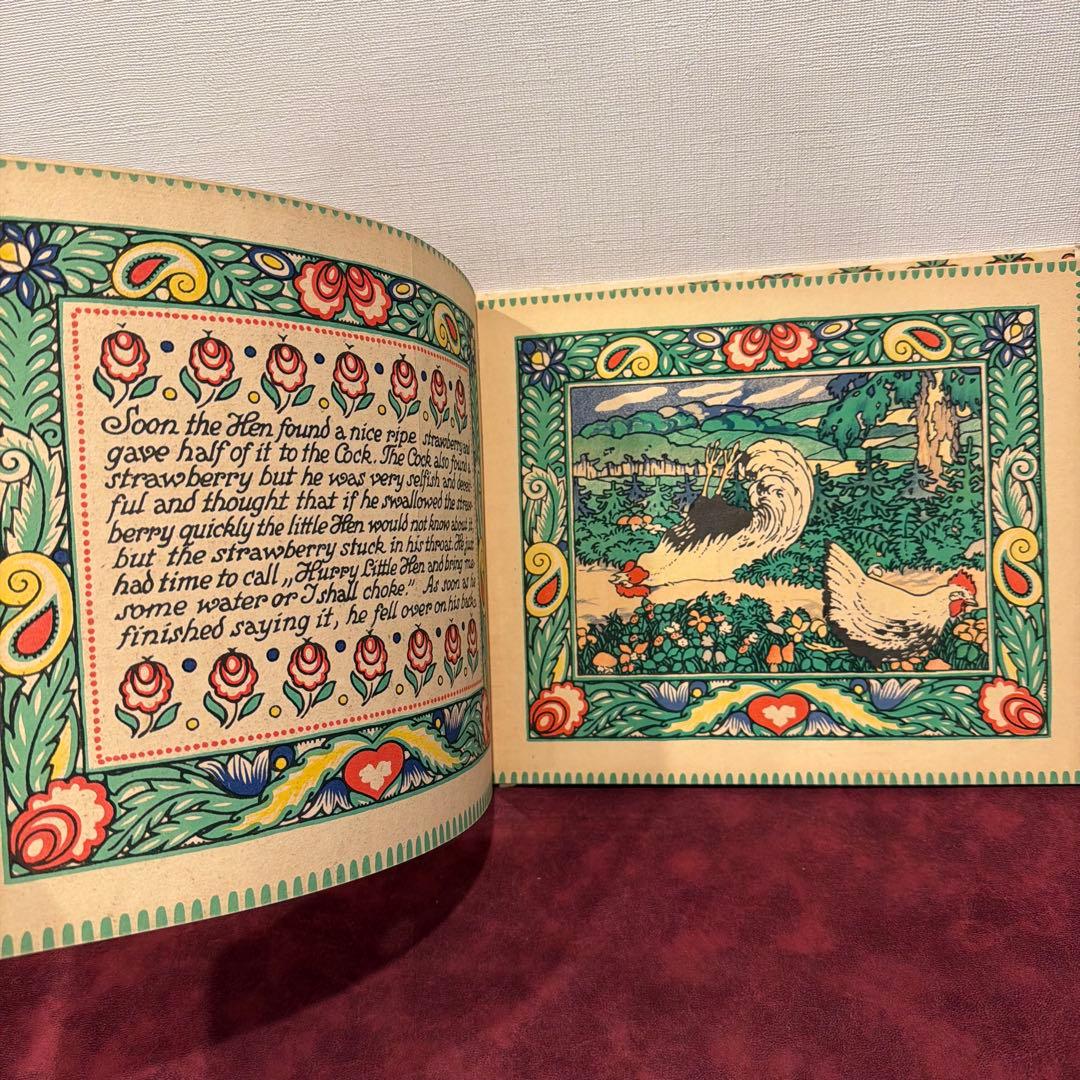 Soon the Hen found a nice ripe strawberry and
gave half of it to the Cock. The Cock also found a
strawberry but he was very selfish and deceit-
ful and thought that if he swallowed the straw-
berry quickly the little Hen would not know about it,
but the strawberry stuck in his throat. He just
had time to call „Hurry Little Hen and bring me
some water or I shall choke." As soon as he
finished saying it, he fell over on his back.